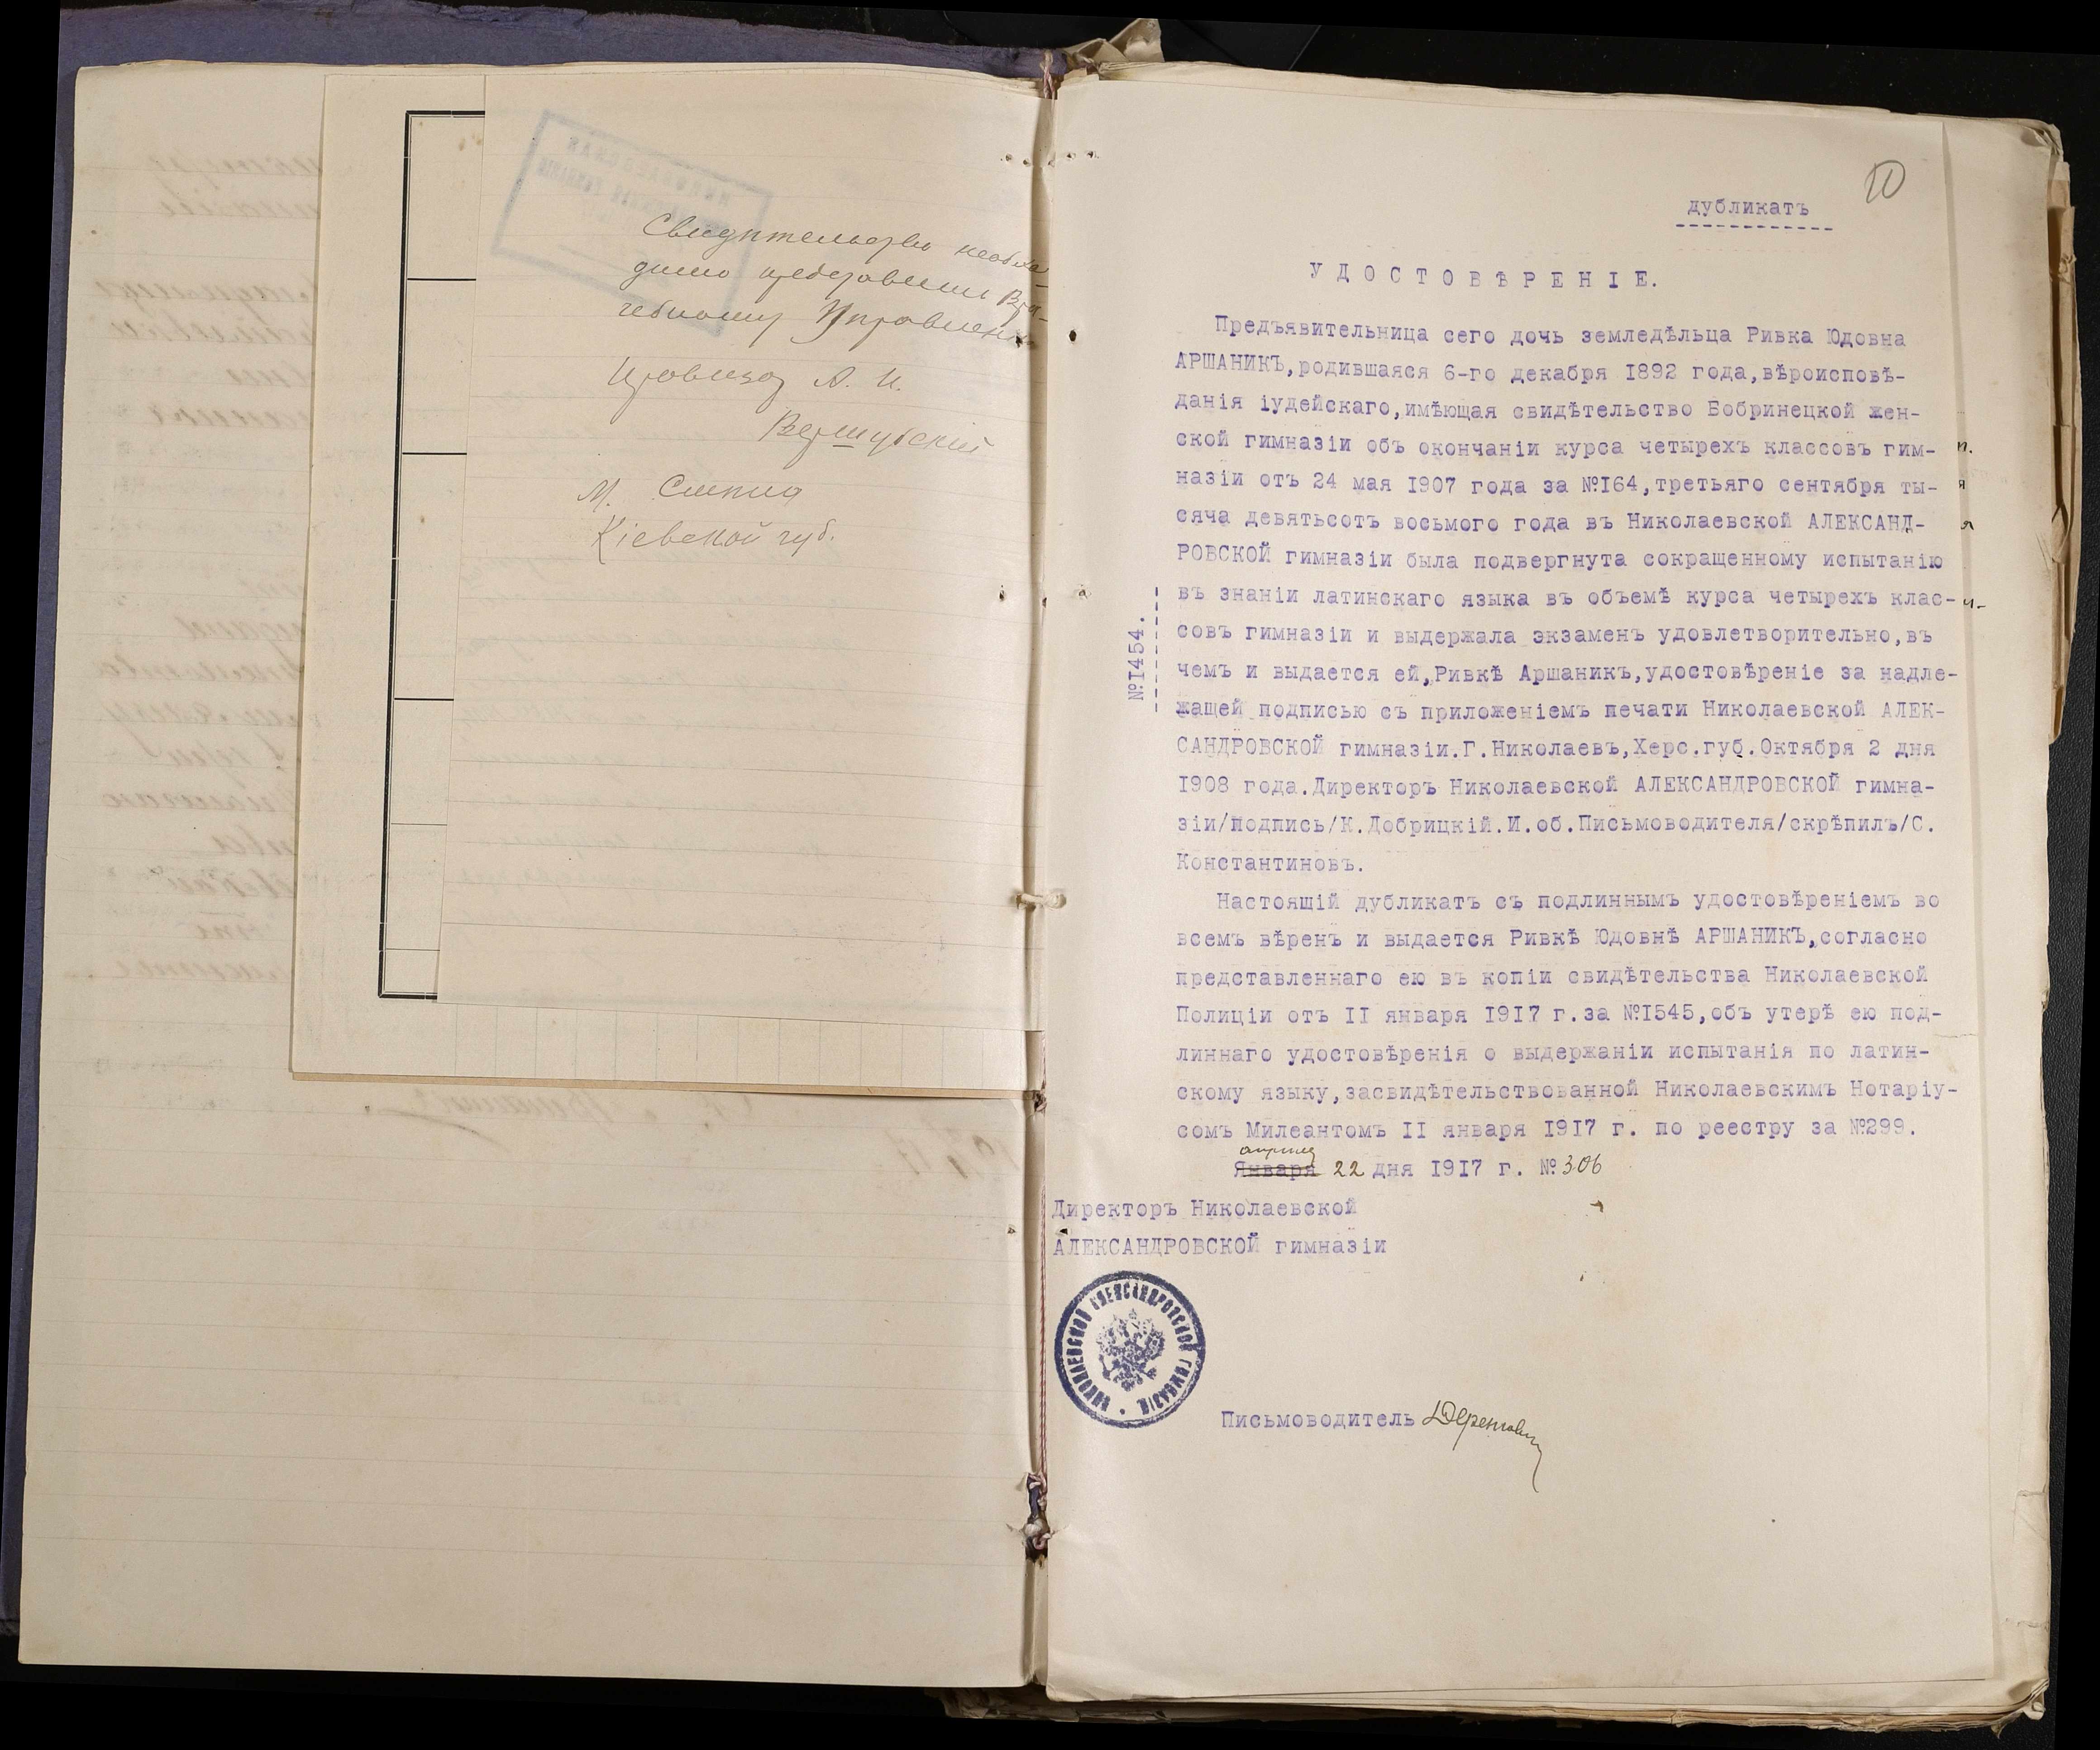 Свидѣтельство необхо-
димо представить Вра-
чебному Управленію
провизор А. И.
М. Смѣла
Кіевской губ.
10
дубликатъ
УДОСТОВѢРЕНІЕ.
Предъявительница сего дочь земледѣльца Ривка Юдовна
АРШАНИКЪ,родившаяся 6-го декабря 1892 года,вѣроисповѣ-
данія іудейскаго,имѣющая свидѣтельство Бобринецкой жен-
ской гимназіи объ окончаніи курса четырехъ классовъ гим-
назіи отъ 24 мая 1907 года за №164,третьяго сентября ты-
сяча девятьсотъ восьмого года въ Николаевской АЛЕКСАНД-
РОВСКОЙ гимназіи была подвергнута сокращенному испытанію
въ знаніи латинскаго языка въ объемѣ курса четырехъ клас-
совъ гимназіи и выдержала экзаменъ удовлетворительно,въ
чемъ и выдается ей,Ривкѣ Аршаникъ,удостовѣреніе за надле-
жащей подписью съ приложеніемъ печати Николаевской АЛЕК-
САНДРОВСКОЙ гимназіи.Г.Николаевъ,Херс.губ.Октября 2 дня
1908 года.Директоръ Николаевской АЛЕКСАНДРОВСКОЙ гимна-
зіи/подпись/К.Добрицкій.И.об.Письмоводителя/скрѣпилъ/С.
Константиновъ.
№1454.
Настоящій дубликатъ съ подлиннымъ удостовѣреніемъ во
всемъ вѣренъ и выдается Ривкѣ Юдовнѣ АРШАНИКЪ,согласно
представленнаго ею въ копіи свидѣтельства Николаевской
Полиціи отъ 11 января 1917 г.за №1545,объ утерѣ ею под-
линнаго удостовѣренія о выдержаніи испытанія по латин-
скому языку,засвидѣтельствованной Николаевскимъ Нотаріу-
сомъ Милеантомъ 11 января 1917 г. по реестру за №299.
апрѣля
Января 22 дня 1917 г. №306
Директоръ Николаевской
АЛЕКСАНДРОВСКОЙ гимназіи
НИКОЛАЕВСКОЙ АЛЕКСАНДРОВСКОЙ ГИМНАЗІИ
Письмоводитель